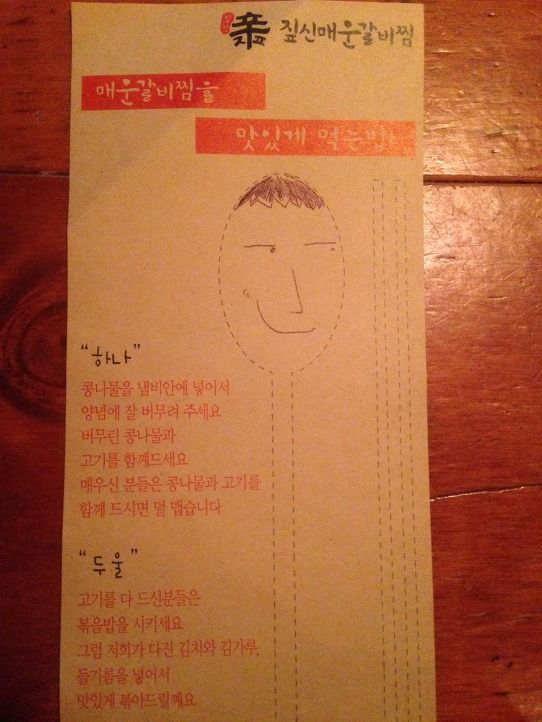 짚신매운갈비찜
매운갈비찜을
맛있게 먹는법
"하나"
콩나물을 냄비안에 넣어서
양념에 잘 버무려 주세요
버무린 콩나물과
고기를 함께드세요
매우신 분들은 콩나물과 고기를
함께 드시면 덜 맵습니다
"두울"
고기를 다 드신분들은
볶음밥을 시키세요
그럼 저희가 다진 김치와 김가루,
들기름을 넣어서
맛있게 볶아드릴께요